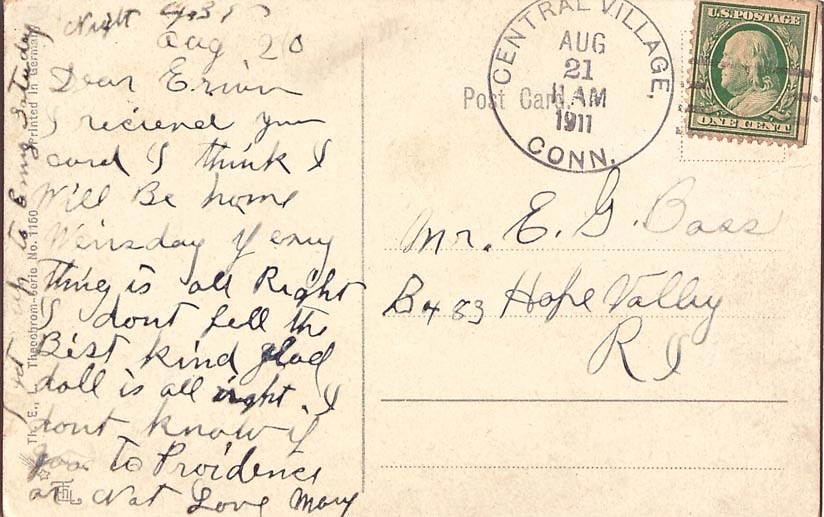 Night
Aug 20
Dear Erwin
I reciened your
card I think I
Will Be home
Wensday if eney
thing is all Right
I dont fell the
Best kind glad
doll is all right. I
dont know if
goo to Providence
or Not Love Mary
up to Saturday
Printed in Germany
Theochrom-Serie No. 1160
Post Card.
CENTRAL VILLAGE,
AUG
21
11 AM
1911
CONN.
U.S. POSTAGE
ONE CENT
Mr. E. G. Bass
Bx 83 Hope Valley
R I